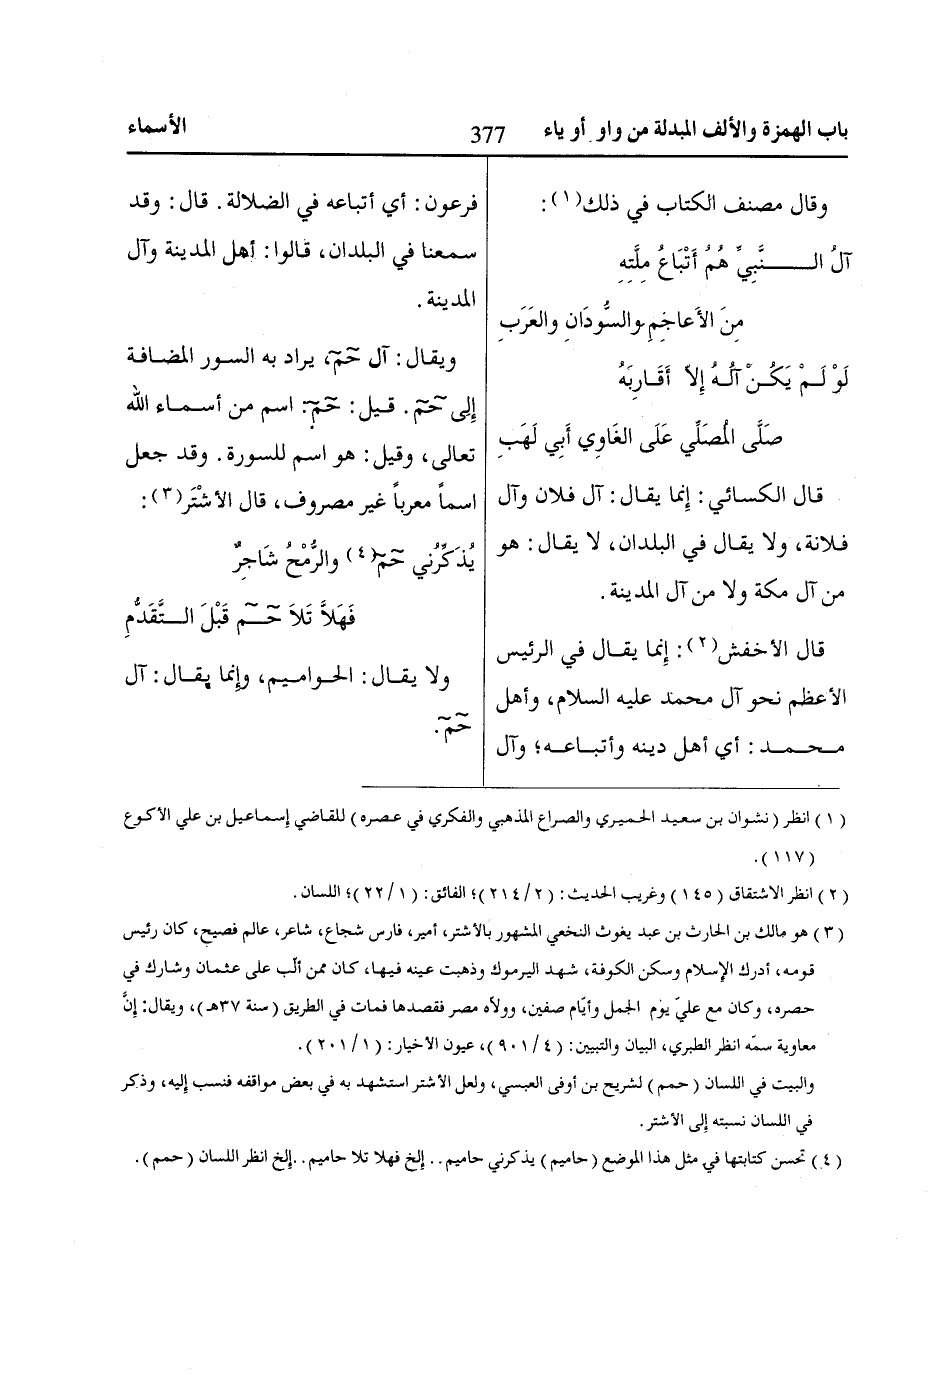 باب الهمزة والألف المبدلة من واو أو ياء 377 الأسماء
وقال مصنف الكتاب في ذلك(١):
آلُ النَّبِيِّ هُمُ أَتْبَاعُ مِلَّتِهِ
مِنَ الأَعاجَمِ والسُّودَانِ والعَرَبِ
لَوْ لَمْ يَكُنْ آلُهُ إِلاَّ أَقَارِبَهُ
صَلَّى المُصَلِّي عَلَى الغَاوِي أَبِي لَهَبِ
قال الكسائي: إِنما يقال: آل فلان وآل
فلانة، ولا يقال في البلدان، لا يقال: هو
من آل مكة ولا من آل المدينة.
قال الأخفش(٢): إِنما يقال في الرئيس
الأعظم نحو آل محمد عليه السلام، وأهل
محمد: أي أهل دينه وأتباعه؛ وآل
فرعون: أي أتباعه في الضلالة. قال: وقد
سمعنا في البلدان، قالوا: أهل المدينة وآل
المدينة.
ويقال: آل حٓمٓ، يراد به السور المضافة
إِلى حٓمٓ. قيل: حٓمٓ: اسم من أسماء الله
تعالى، وقيل: هو اسم للسورة. وقد جعل
اسماً معرباً غير مصروف، قال الأشْتَر(٣):
يُذَكِّرُني حٓمٓ(٤) والرُّمْحُ شَاجِرٌ
فَهَلاَّ تَلاَ حٓمٓ قَبْلَ التَّقَدُّمِ
ولا يقال: الحواميم، وإِنما يقال: آل
حٓمٓ.
(١) انظر (نشوان بن سعيد الحميري والصراع المذهبي والفكري في عصره) للقاضي إسماعيل بن علي الأكوع
(١١٧).
(٢) انظر الاشتقاق (١٤٥) وغريب الحديث: (٢/٢١٤)؛ الفائق: (١/٢٢)؛ اللسان.
(٣) هو مالك بن الحارث بن عبد يغوث النخعي المشهور بالأشتر، أمير، فارس شجاع، شاعر، عالم فصيح، كان رئيس
قومه، أدرك الإسلام وسكن الكوفة، شهد اليرموك وذهبت عينه فيها، كان ممن ألّب على عثمان وشارك في
حصره، وكان مع عليّ يوم الجمل وأيّام صفين، وولاّه مصر فقصدها فمات في الطريق (سنة ٣٧هـ)، ويقال: إنَّ
معاوية سمّه انظر الطبري، البيان والتبيين: (٤/٩٠١)، عيون الأخبار: (١/٢٠١).
والبيت في اللسان (حمم) لشريح بن أوفى العبسي، ولعل الأشتر استشهد به في بعض مواقفه فنسب إليه، وذكر
في اللسان نسبته إلى الأشتر.
(٤) تحسن كتابتها في مثل هذا الموضع (حاميم) يذكرني حاميم.. إلخ فهلا تلا حاميم.. إلخ انظر اللسان (حمم).